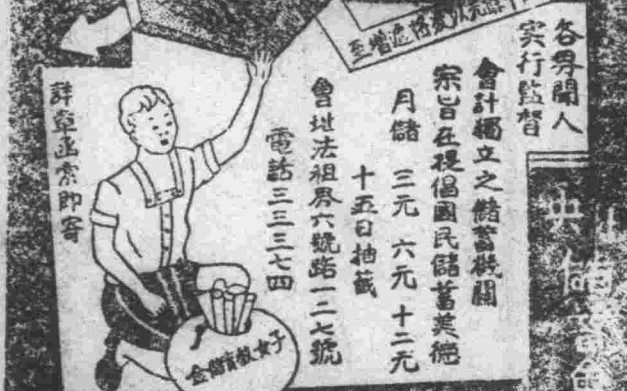 各界聞人
实行監督
會計獨立之儲蓄機關
宗旨在提倡國民儲蓄美德
月儲 三元 六元 十二元
十五日抽籤
會址法祖界六號路一二七號
電話三三三七四
詳章函索即寄
央儲蓄會